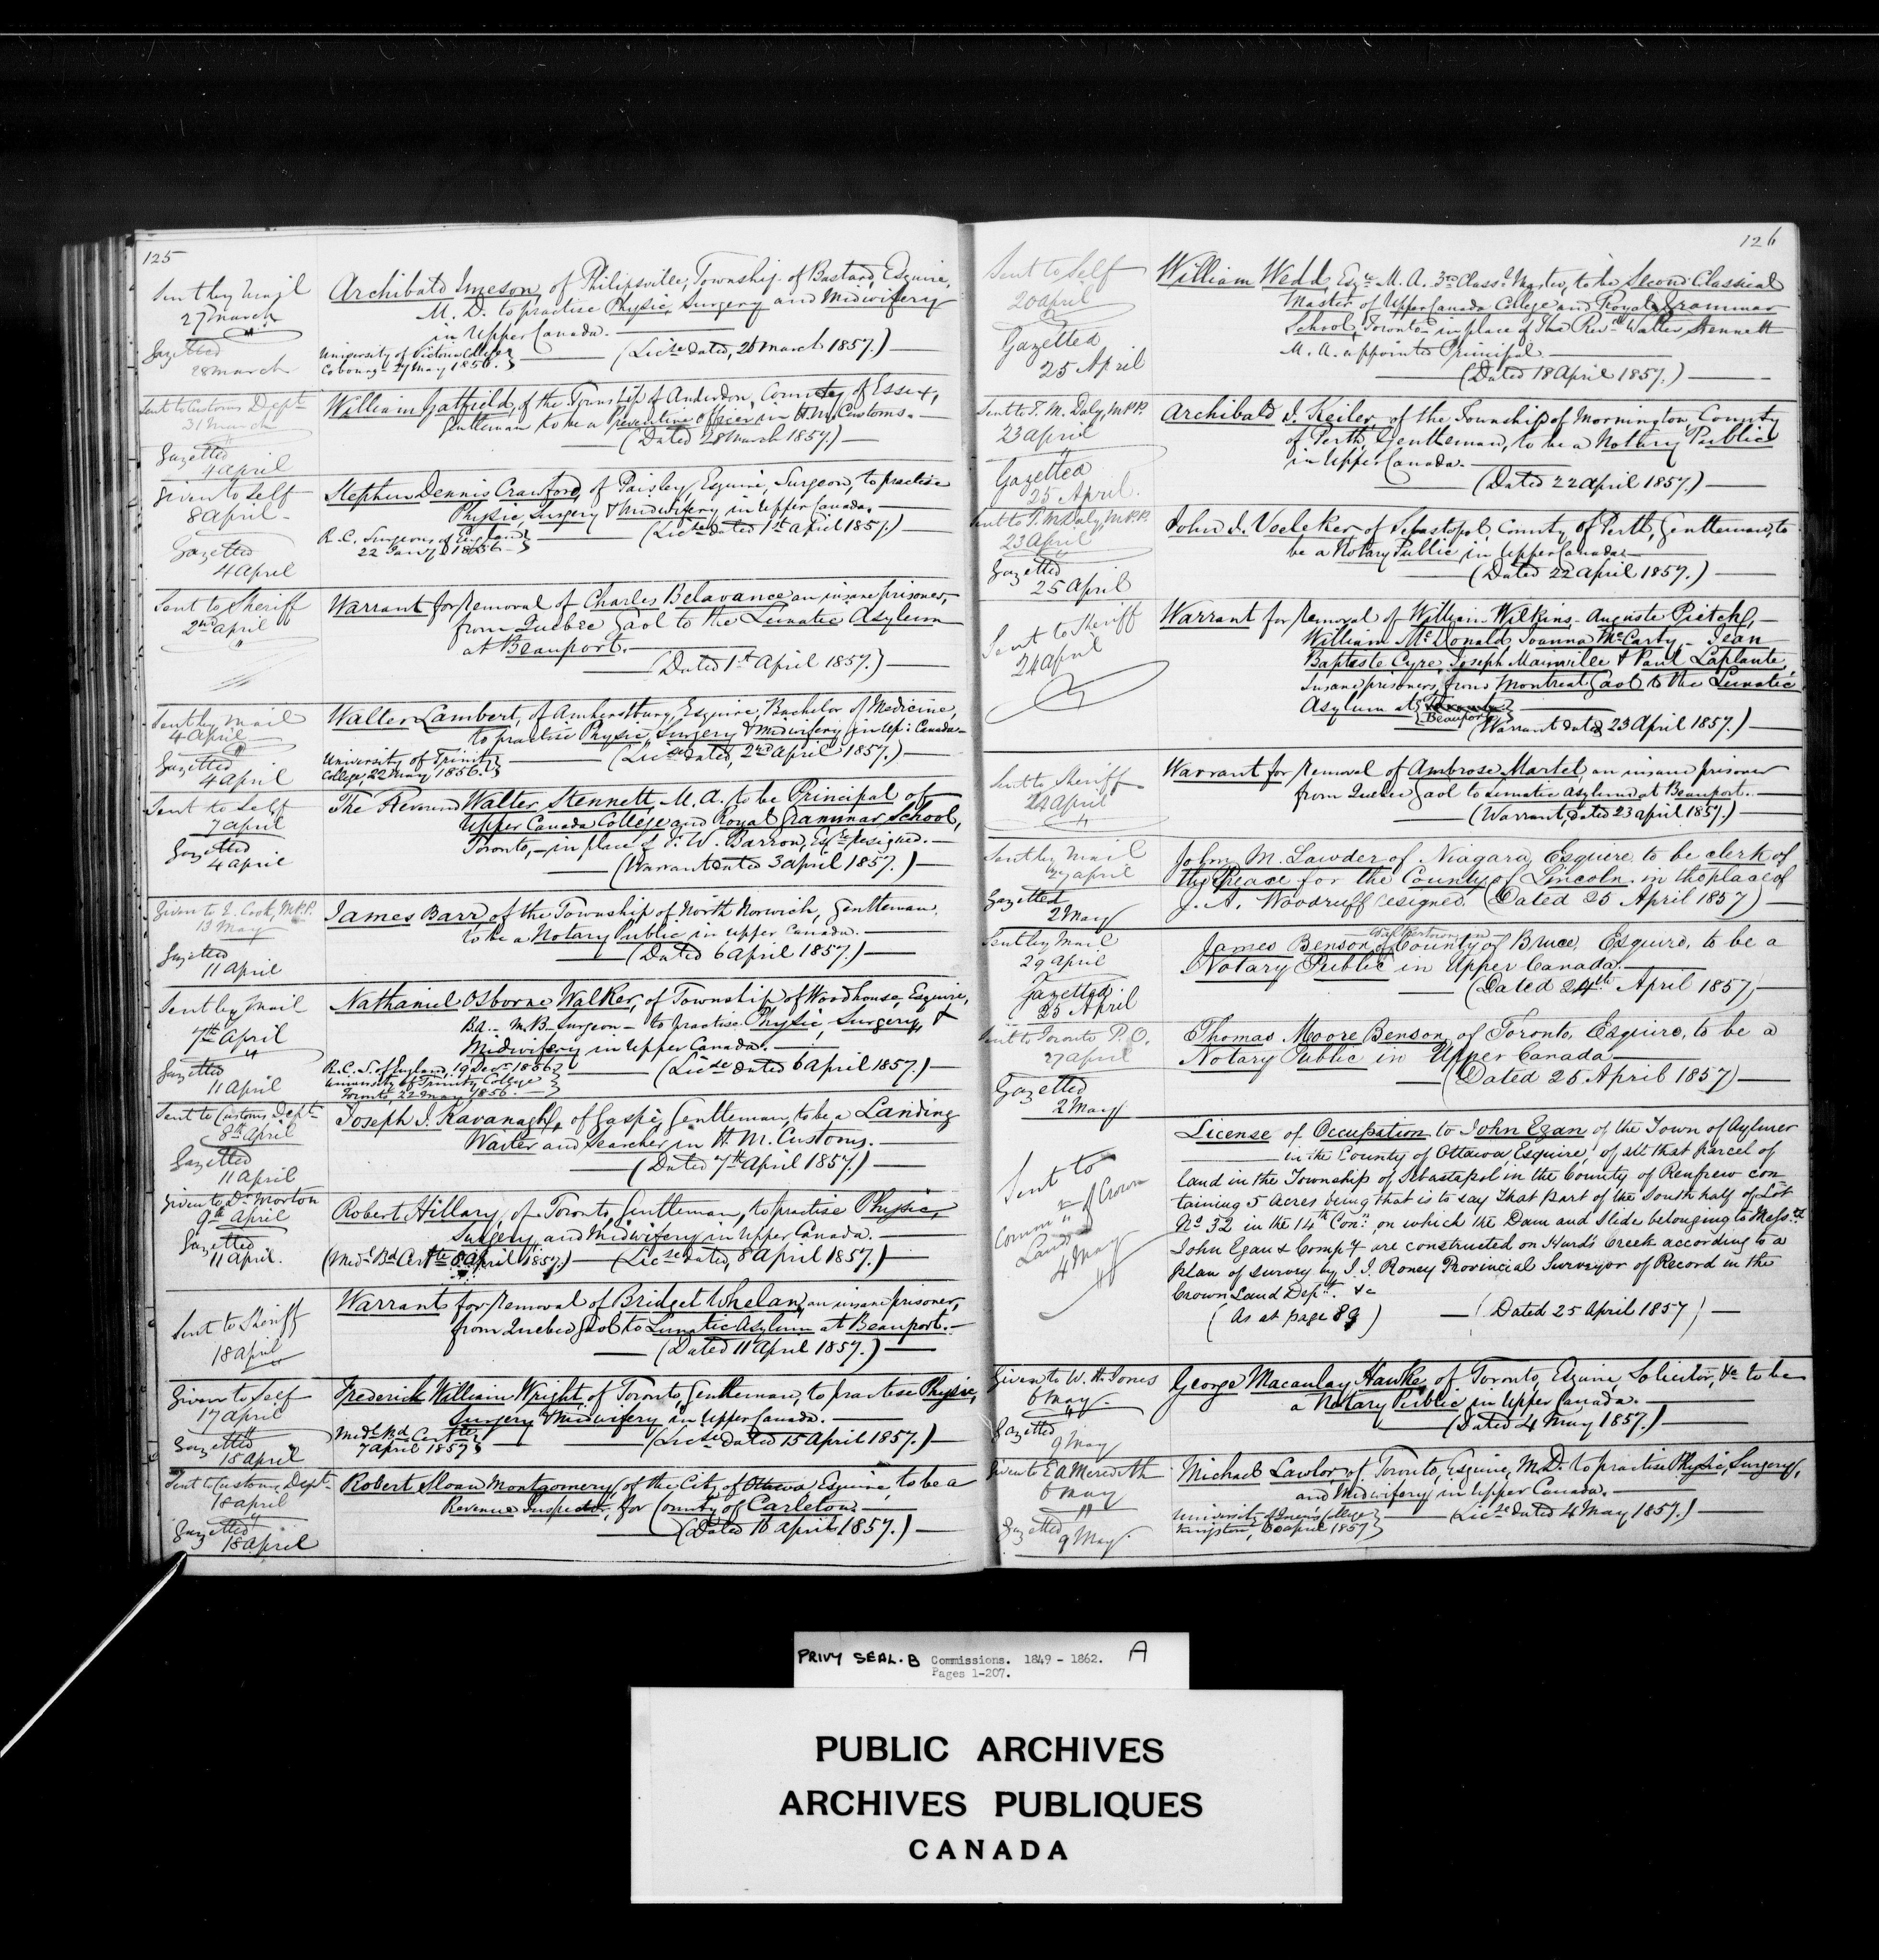 125
Sent by Mail
27 March
Archibald Imeson, of Philipsville, Township of Bastard, Esquire,
M. D. to practise Physic, Surgery and Midwifery
in Upper Canada.
Gazetted
28 March
University of Victoria College
Cobourg 27 May 1856.
(Licse dated, 26 March 1857.)
Sent to Customs Dept
31 March
William Gatfield, of the Township of Anderdon, County of Essex,
Gentleman to be a Preventive Officer in H. M. Customs.
(Dated 28 March 1857.)
Gazetted
4 April
Given to Self
8 April
Stephen Dennis Crawford, of Paisley, Esquire, Surgeon, to practise
Physic, Surgery & Midwifery in Upper Canada.
R. C. Surgeons of England
22 Jany 1856
(Licse dated 1st April 1857.)
Gazetted
4 April
Sent to Sheriff
2nd April
Warrant for removal of Charles Belavance an insane prisoner,
from Quebec Gaol to the Lunatic Asylum
at Beauport.
(Dated 1st April 1857.)
Sent by Mail
4 April
Walter Lambert, of Amherstburg, Esquire, Bachelor of Medicine,
to practise Physic, Surgery & Midwifery in Up: Canada
Gazetted
4 April
University of Trinity
College, 22 May 1856.
(Licse dated, 2nd April 1857.)
Sent to Self
7 April
The Reverend Walter Stennett, M. A. to be Principal of
Upper Canada College and Royal Grammar School,
Toronto, in place of F. W. Barron, Esqre resigned.
(Warrant dated 3 April 1857.)
Gazetted
4 April
Given to E. Cook, M.P.P.
13 May
James Barr of the Township of North Norwich, Gentleman,
to be a Notary Public in Upper Canada.
(Dated 6 April 1857.)
Gazetted
11 April
Sent by Mail
7th April
Nathaniel Osborne Walker, of Township of Woodhouse, Esquire,
B.A. M.B. Surgeon to practise Physic, Surgery, &
Midwifery in Upper Canada.
Gazetted
11 April
R.C.S. of England, 19 Decr 1856
University of Trinity College
Toronto, 22 May 1856.
(Licse dated 6 April 1857.)
Sent to Customs Dept
8th April
Joseph I. Kavanagh, of Gaspé, Gentleman, to be a Landing
Waiter and Searcher in H. M. Customs.
(Dated 7th April 1857.)
Gazetted
11 April
Given to Dr Morton
9th April
Robert Hillary, of Toronto, Gentleman, to practise Physic,
Surgery and Midwifery in Upper Canada.
Gazetted
11 April.
(Medl Bd Certte 8 April 1857.) (Licse dated, 8 April 1857.)
Sent to Sheriff
18 April
Warrant for removal of Bridget Whelan, an insane prisoner,
from Quebec Gaol to Lunatic Asylum at Beauport.
(Dated 11 April 1857.)
Given to Self
17 April
Frederick William Wright, of Toronto, Gentleman, to practise Physic,
Surgery & Midwifery in Upper Canada.
Gazetted
18 April
Medl Bd Certte
7 April 1857
(Licse dated 15 April 1857.)
Sent to Customs Dept
18 April
Robert Sloan Montgomery, of the City of Ottawa Esquire, to be a
Revenue Inspector, for County of Carleton.
(Dated 16 April 1857.)
Gazetted
18 April
126
Sent to Self
20 April
William Wedd, Esqre M. A. 3rd Classl Master, to be Second Classical
Master of Upper Canada College and Royal Grammar
School, Toronto in place of The Revd Walter Stennett
M. A. appointed Principal
(Dated 18 April 1857.)
Gazetted
25 April
Sent to T. M. Daly, M.P.P.
23 April
Archibald I. Keiler, of the Township of Mornington, County
of Perth, Gentleman, to be a Notary Public
in Upper Canada.
(Dated 22 April 1857.)
Gazetted
25 April.
Sent to T. M. Daly, M.P.P.
23 April
John I. Voelcker of Sebastopol, County of Perth, Gentleman, to
be a Notary Public in Upper Canada
(Dated 22 April 1857.)
Gazetted
25 April
Sent to Sheriff
24 April
Warrant for removal of William Wilkins, Auguste Pietch,
William McDonald, Joanna McCarty, Jean
Baptiste Cyre, Joseph Mainville & Paul Laplante,
Insane prisoners, from Montreal Gaol to the Lunatic
Asylum at
Beauport
(Warrant dated 23 April 1857.)
Sent to Sheriff
24 April
Warrant for removal of Ambrose Martel, an insane prisoner
from Quebec Gaol to Lunatic Asylum at Beauport.
(Warrant, dated 23 April 1857.)
Sent by Mail
27 April
John M. Lawder of Niagara, Esquire to be Clerk of
the Peace for the County of Lincoln in the place of
J. A. Woodruff resigned. (Dated 25 April 1857)
Gazetted
2 May
Sent by Mail
29 April
James Benson, of County of Bruce, Esquire, to be a
Notary Public in Upper Canada.
(Dated 24th April 1857)
Gazetted
25 April
Sent to Toronto P.O.
27 April
Thomas Moore Benson, of Toronto, Esquire, to be a
Notary Public in Upper Canada
(Dated 25 April 1857)
Gazetted
2 May
Sent to
Commr of Crown
Lands
4 May
License of Occupation to John Egan of the Town of Aylmer
in the County of Ottawa, Esquire, of all that parcel of
land in the Township of Sebastapol in the County of Renfrew con-
taining 5 Acres being that is to say that part of the South half of Lot
No 32 in the 14th Conn on which the Dam and Slide belonging to Messrs
John Egan & Compy are constructed on Hurd's Creek according to a
plan of survey by J. J. Roney Provincial Surveyor of Record in the
Crown Land Dept. &c
(As at page 89) (Dated 25 April 1857)
Given to W. H. Jones
6 May
George Macaulay Hawke, of Toronto, Esquire, Solicitor, &c to be
a Notary Public in Upper Canada.
(Dated 4 May 1857.)
Gazetted
9 May
Given to E A Meredith
6 May
Michael Lawlor of Toronto, Esquire, M.D. to practise Physic, Surgery,
and Midwifery in Upper Canada.
Gazetted
9 May.
University of Queen's College
Kingston, April 1857
(Licse dated 4 May 1857.)
PRIVY SEAL. B Commissions. 1849 - 1862. A
Pages 1-207.
PUBLIC ARCHIVES
ARCHIVES PUBLIQUES
CANADA